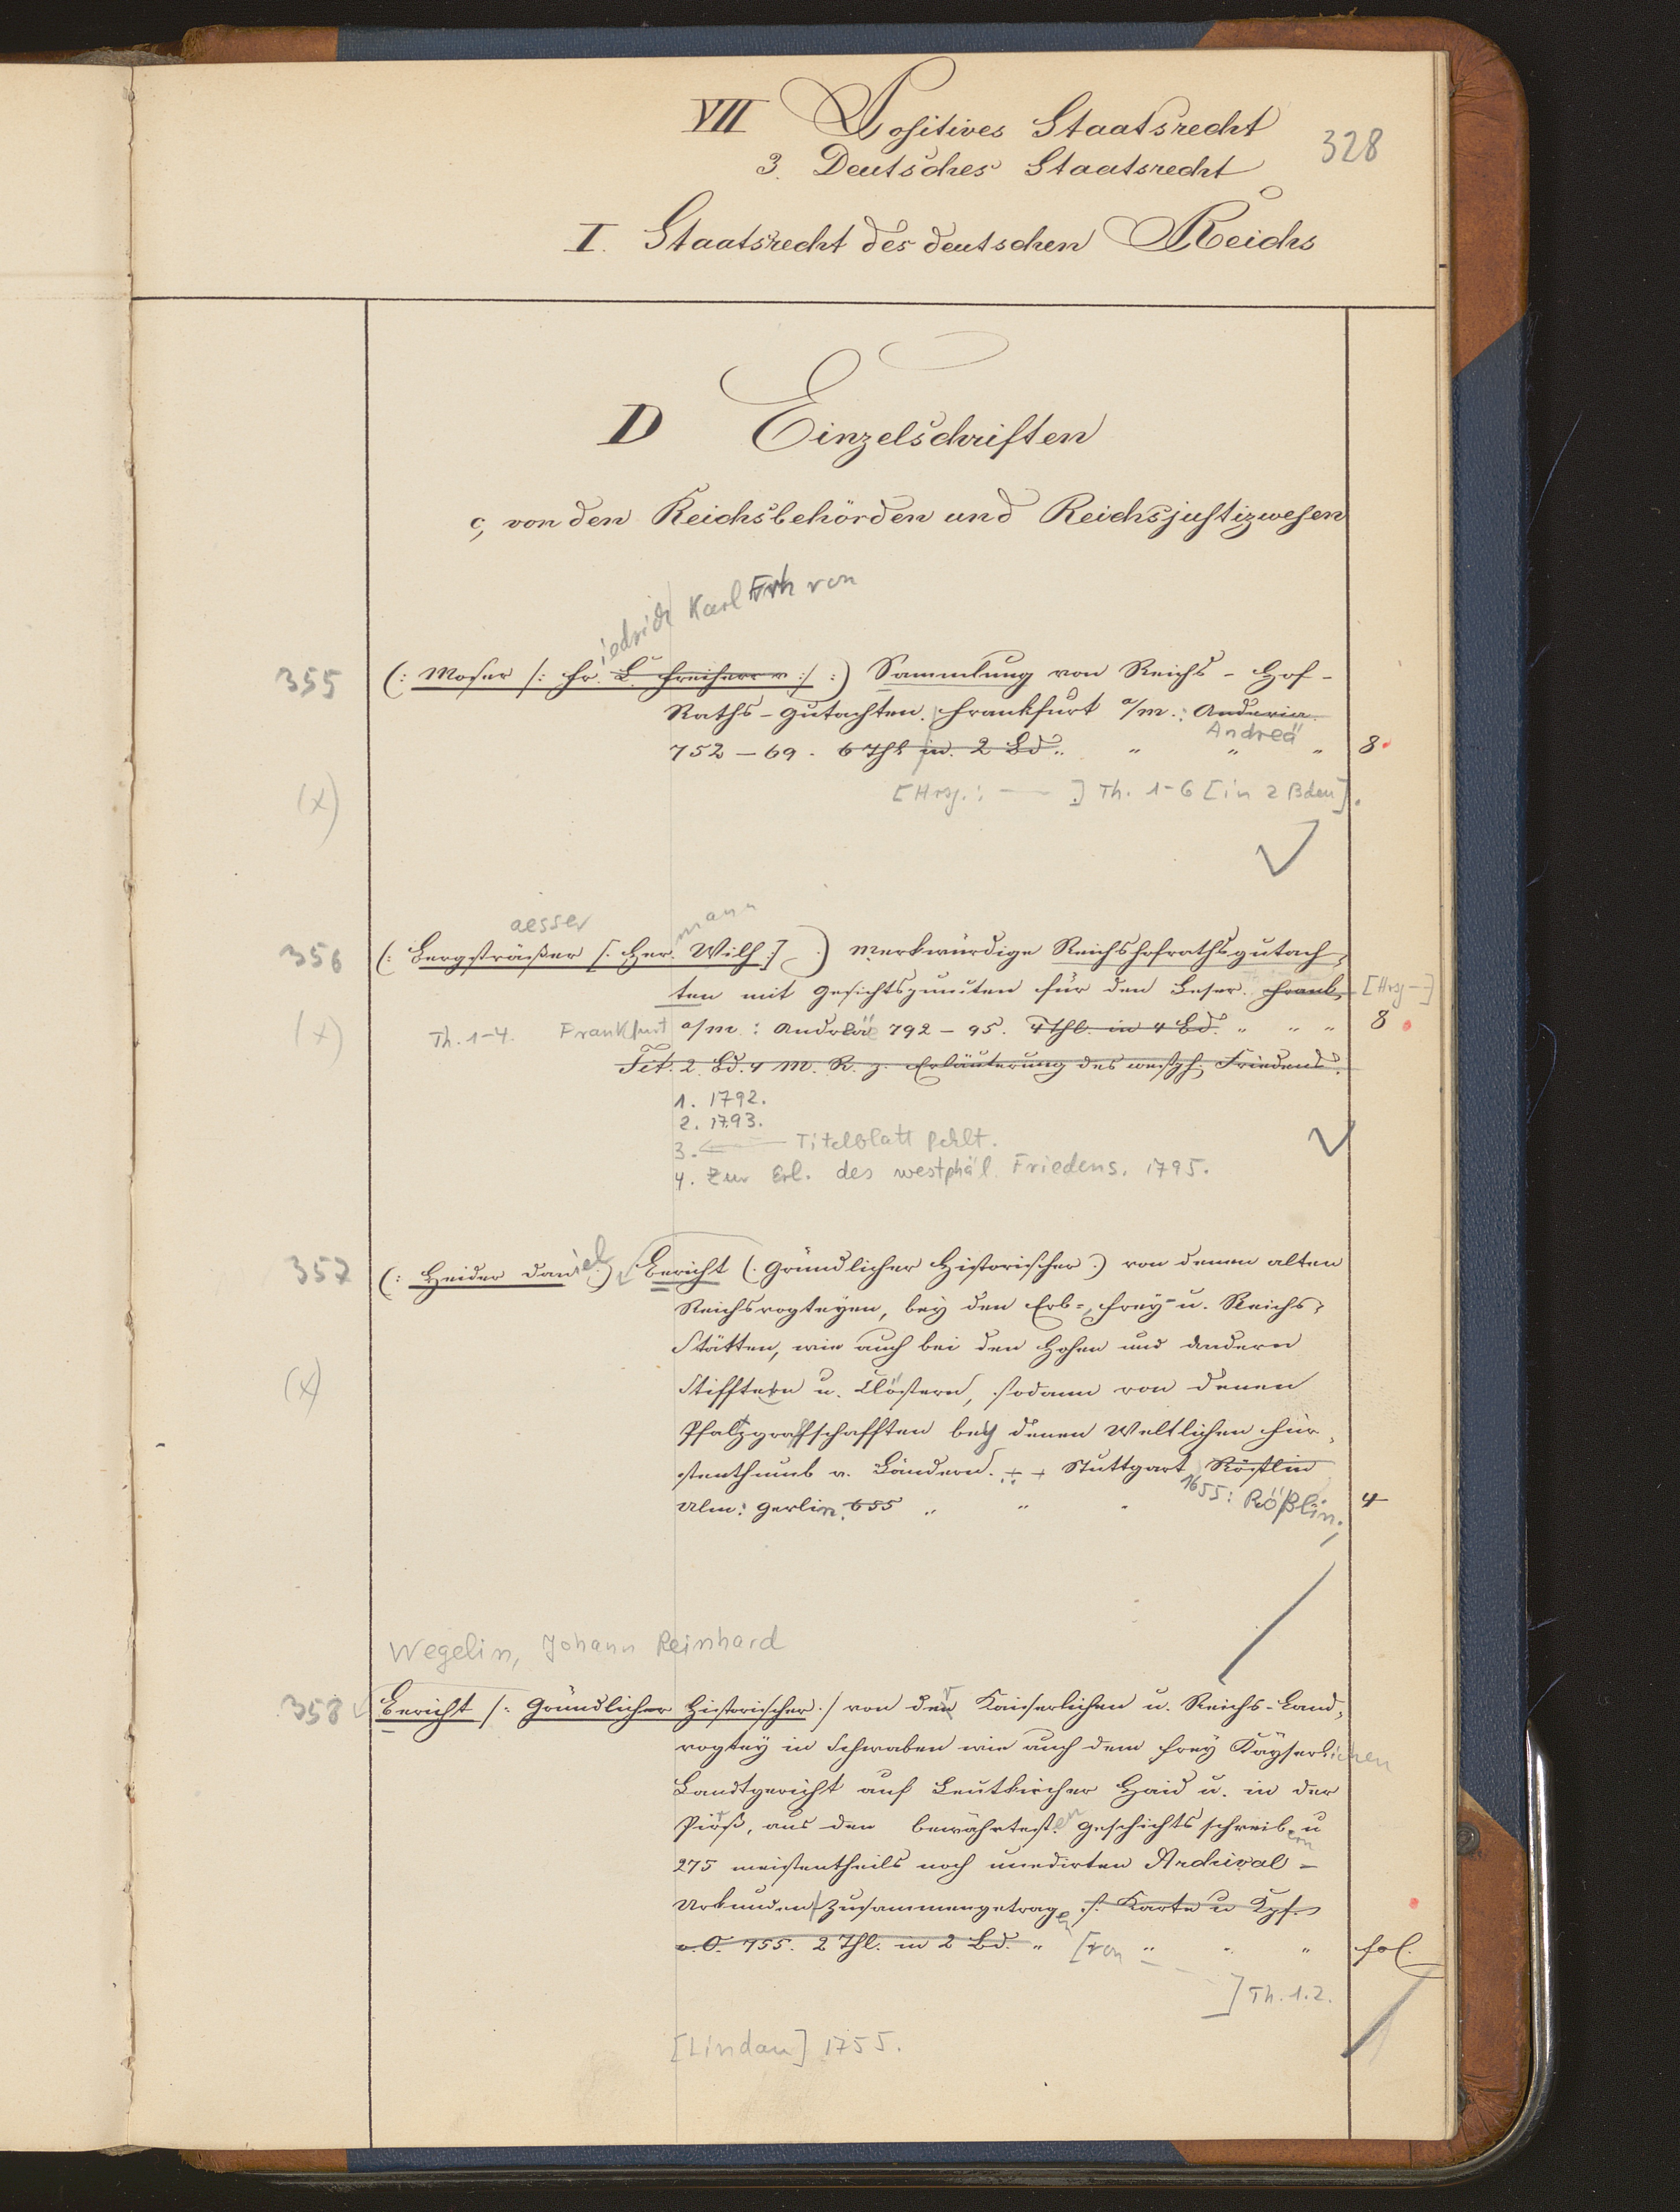 VII Positives Staatsrecht
328
3. Deutsches Staatsrecht
I. Staatsrecht des deutschen Reichs
D Einzelschriften
c, von den Reichsbehörden und Reichsjustizwesen
iedrich Karl Frh von
355 (: Moser /: Fr. C. Freiherr v :/ :) Sammlung von Reichs-Hof-
Raths-Gutachten. Frankfurt a/m.: Andreä
Andreä
752-69. 6 Thl in 2 Bd. " " " 8
(x) [Hrsg.: — ] Th. 1-6 [in 2 Bden].
aesser mann
356 (: Bergsträßer [: Her. Wilh :] :) Merkwürdige Reichshofrathsgutach-
ten mit Gesichtspuncten für den Leser. Frank- [Hrsg —]
(x) Th. 1-4. Frankfurt a/m.: Andreä 792-95. 4 Thl. in 4 Bd. " " " 8
Tit. 2. Bd. 4 M. R. z. Erläuterung des westph. Friedens.
1. 1792.
2. 1793.
3. ← Titelblatt fehlt.
4. Zur Erl. des westphäl. Friedens. 1795.
357 (: Heider Daniel :) Bericht (: Gründlicher Historischer :) von denen alten
Reichsvogteyen, bey den Erb-, Frey- u. Reichs-
Stätten, wie auch bei den Hohen und andern
(x) Stifftern u. Clöstern, sodann von denen
Pfaltzgraffschafften bey denen Weltlichen Für-
stenthumb u. Ländern. Stuttgart Rößlin
1655: Rößlin.
Ulm: Gerlin. 655 " " " 4
Wegelin, Johann Reinhard
358 Bericht /: Gründlicher Historischer :/ von der Kaiserlichen u. Reichs-Land-
vogtey in Schwaben wie auch dem frey Kayserlichen
Landtgericht auf Leutkircher Haid u. in der
Pirß, aus den bewährtesten Geschichtsschreibern u
275 meistentheils noch unedirten Archival-
Urkunden zusammengetragen :/. Karte u Kpf.
o. O. 755. 2 Thl. in 2 Bd. " [von " " " fol.
] Th. 1.2.
[Lindau] 1755.